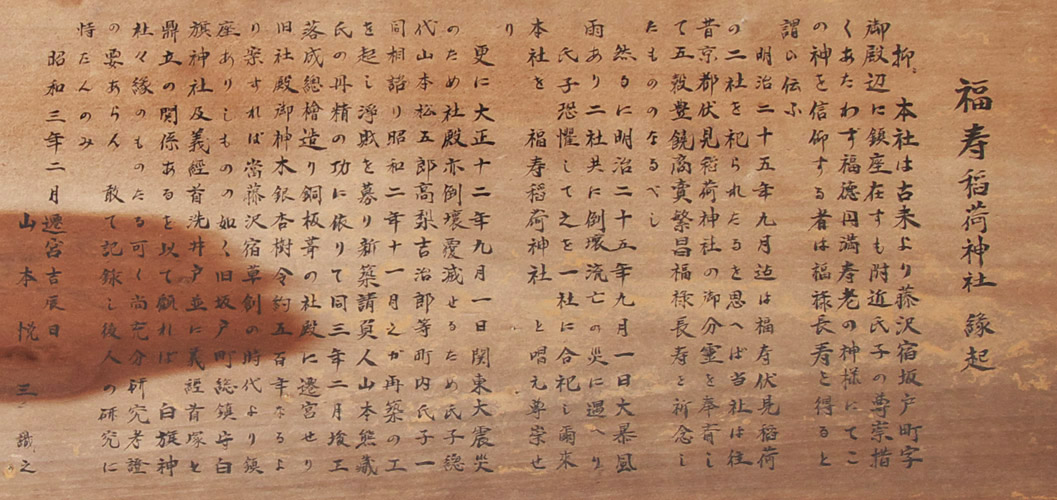 福寿稲荷神社 縁起
抑、本社は古来より藤沢宿坂戸町字
御殿辺に鎮座在すも附近氏子の尊崇措
くあたわず福徳円満寿老の神様にてこ
の神を信仰する者は福禄長寿と得ると
謂ひ伝ふ
明治二十五年九月迠は福寿伏見稲荷
の二社を祀られたるを思へば当社は往
昔京都伏見稲荷神社の御分霊を奉斎し
て五穀豊饒商賣繁昌福禄長寿と祈念し
たものなるべし
然るに明治二十五年九月一日大暴風
雨あり二社共に倒壊流亡の災に遇へり
氏子恐懼して之を一社に合祀し爾来
本社を 福寿稲荷神社 と唱え尊崇せ
り
更に大正十二年九月一日関東大震災
のため社殿亦倒壊覆滅せるため氏子総
代山本松五郎高梨吉治郎等町内氏子一
同相諮り昭和二年十一月之が再築の工
を起し浄財を募り新築請負人山本熊蔵
氏の丹精の功に依りて同三年二月竣工
落成總檜造り銅板葺の社殿に遷宮せり
旧社殿御神木銀杏樹令約五百年なるよ
り案ずれば當藤沢宿草創の時代より鎮
座ありしものの如く旧坂戸町総鎮守白
旗神社及義經首洗井戸並に義經首塚と
鼎立の関係あるを以て顧れば 白旗神
社々縁のものたる可く尚充分研究考證
の要あらん 敢て記録し後人の研究に
恃たんのみ
昭和三年二月遷宮吉辰日
山本 悦三 識之